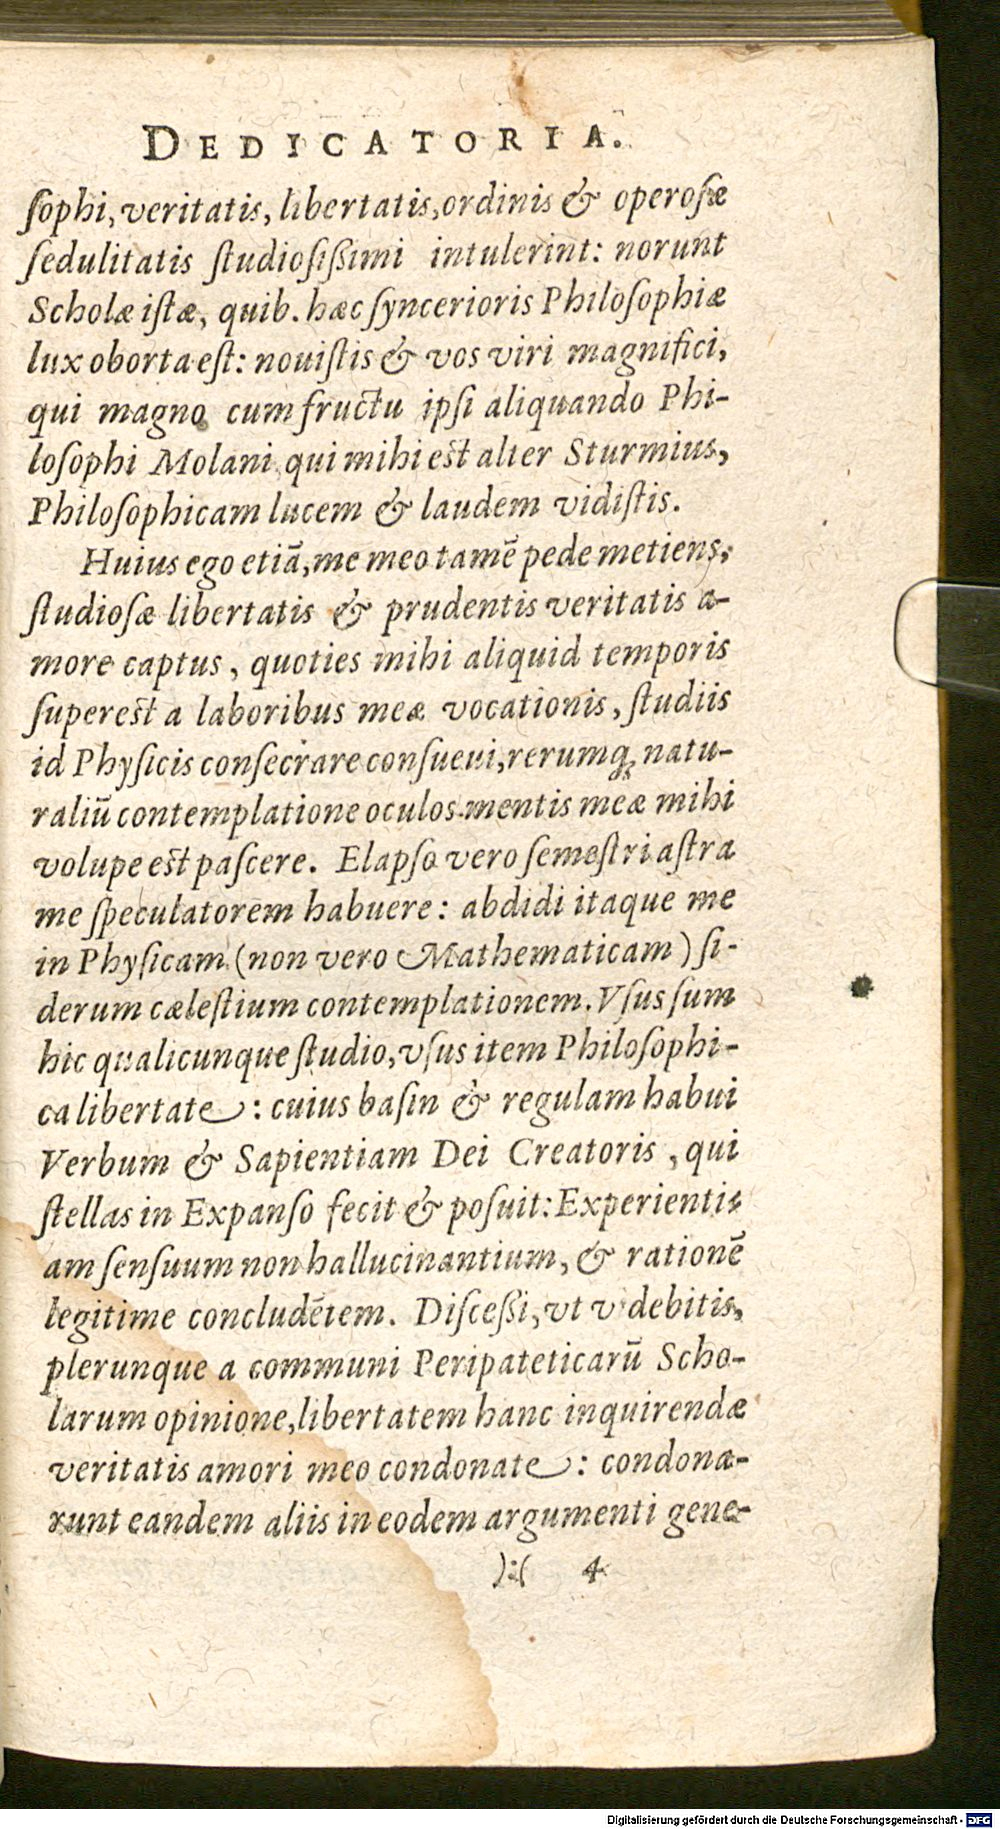 DEDICATORIA.
ſophi, veritatis, libertatis, ordinis & operoſæ
ſedulitatis ſtudioſiſsimi intulerint: norunt
Scholæ iſtæ, quib. hæc ſyncerioris Philoſophiæ
lux oborta eſt: nouiſtis & vos viri magnifici,
qui magno cum fructu ipſi aliquando Phi-
loſophi Molani qui mihi eſt alter Sturmius,
Philoſophicam lucem & laudem vidiſtis.
Huius ego etiã, me meo tamẽ pede metiens,
ſtudioſæ libertatis & prudentis veritatis a-
more captus, quoties mihi aliquid temporis
ſupereſt a laboribus meæ vocationis, ſtudiis
id Phyſicis conſecrare conſueui, rerumq; natu-
raliũ contemplatione oculos mentis meæ mihi
volupe eſt paſcere. Elapſo vero ſemeſtri aſtra
me ſpeculatorem habuere: abdidi itaque me
in Phyſicam (non vero Mathematicam) ſi-
derum cæleſtium contemplationem. Vſus ſum
hic qualicunque ſtudio, vſus item Philoſophi-
ca libertate: cuius baſin & regulam habui
Verbum & Sapientiam Dei Creatoris, qui
ſtellas in Expanſo fecit & poſuit: Experienti-
am ſenſuum non hallucinantium, & rationẽ
legitime concludẽtem. Diſceſsi, vt videbitis,
plerunque a communi Peripateticarũ Scho-
larum opinione, libertatem hanc inquirendæ
veritatis amori meo condonate: condona-
runt eandem aliis in eodem argumenti gene-
):( 4
Digitalisierung gefördert durch die Deutsche Forschungsgemeinschaft - DFG